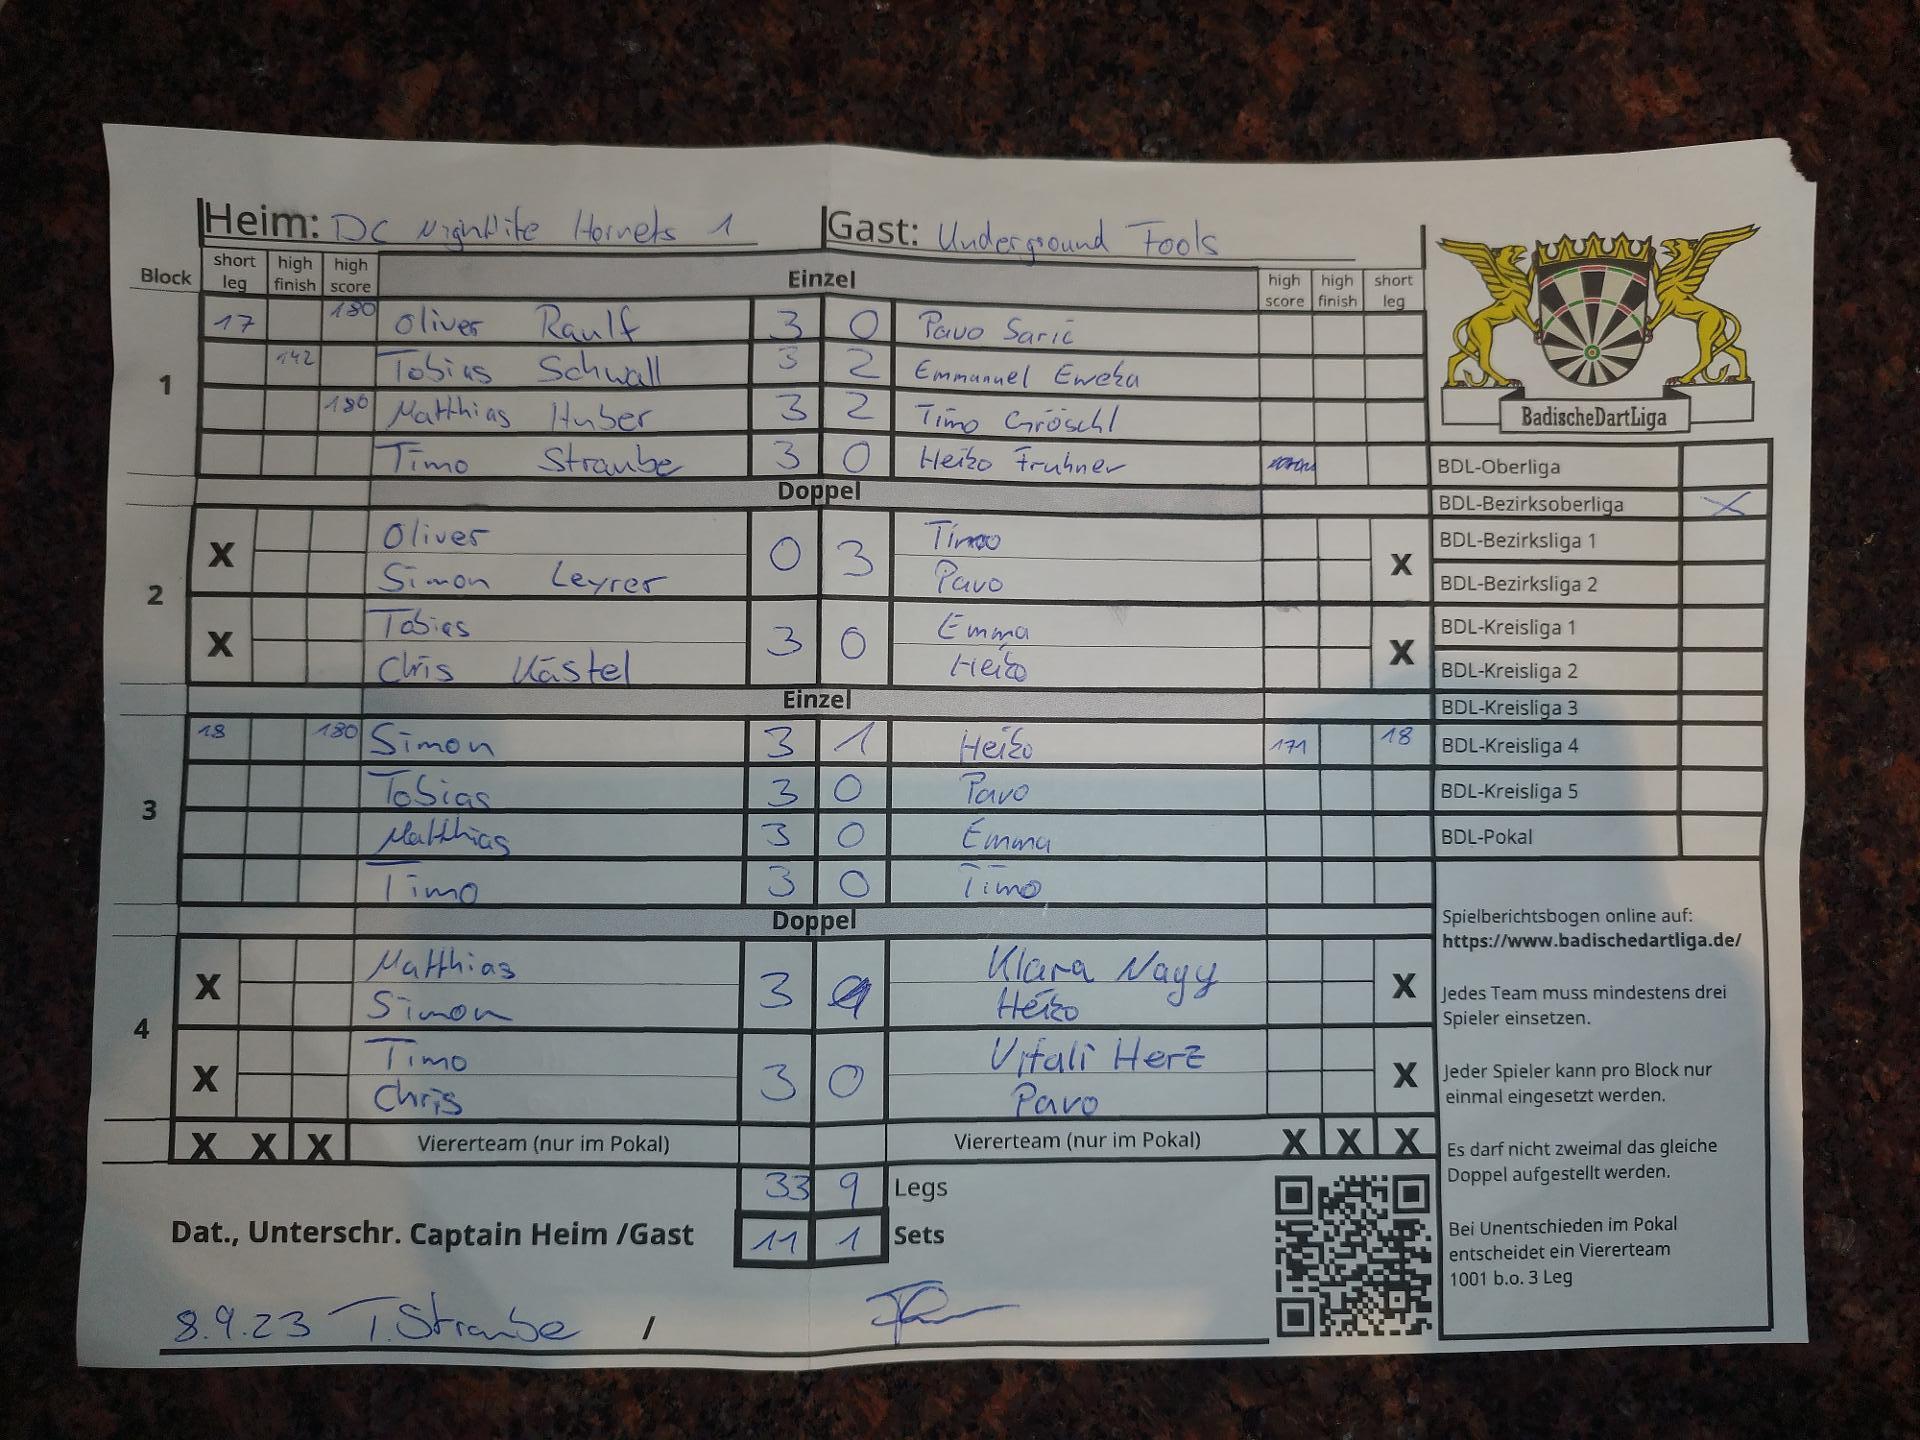 Heim: DC Nightlite Hornets 1 Gast: Underground Fools
Block short leg high finish high score Einzel high score high finish short leg
1
17 180 Oliver Raulf 3 0 Pavo Saric
142 Tobias Schwall 3 2 Emmanuel Eweka
180 Matthias Huber 3 2 Timo Gröschl
Timo Straube 3 0 Heiko Fruhner
Doppel
2
X Oliver 0 3 Timo X
Simon Leyrer Pavo
X Tobias 3 0 Emma X
Chris Kästel Heiko
Einzel
3
18 180 Simon 3 1 Heiko 171 18
Tobias 3 0 Pavo
Matthias 3 0 Emma
Timo 3 0 Timo
Doppel
4
X Matthias 3 Klara Nagy X
Simon Heiko
X Timo 3 0 Vitali Herz X
Chris Pavo
X X X Viererteam (nur im Pokal) Viererteam (nur im Pokal) X X X
33 9 Legs
Dat., Unterschr. Captain Heim /Gast 11 1 Sets
8.9.23 T. Straube /
BadischeDartLiga
BDL-Oberliga
BDL-Bezirksoberliga X
BDL-Bezirksliga 1
BDL-Bezirksliga 2
BDL-Kreisliga 1
BDL-Kreisliga 2
BDL-Kreisliga 3
BDL-Kreisliga 4
BDL-Kreisliga 5
BDL-Pokal
Spielberichtsbogen online auf:
https://www.badischedartliga.de/
Jedes Team muss mindestens drei
Spieler einsetzen.
Jeder Spieler kann pro Block nur
einmal eingesetzt werden.
Es darf nicht zweimal das gleiche
Doppel aufgestellt werden.
Bei Unentschieden im Pokal
entscheidet ein Viererteam
1001 b.o. 3 Leg